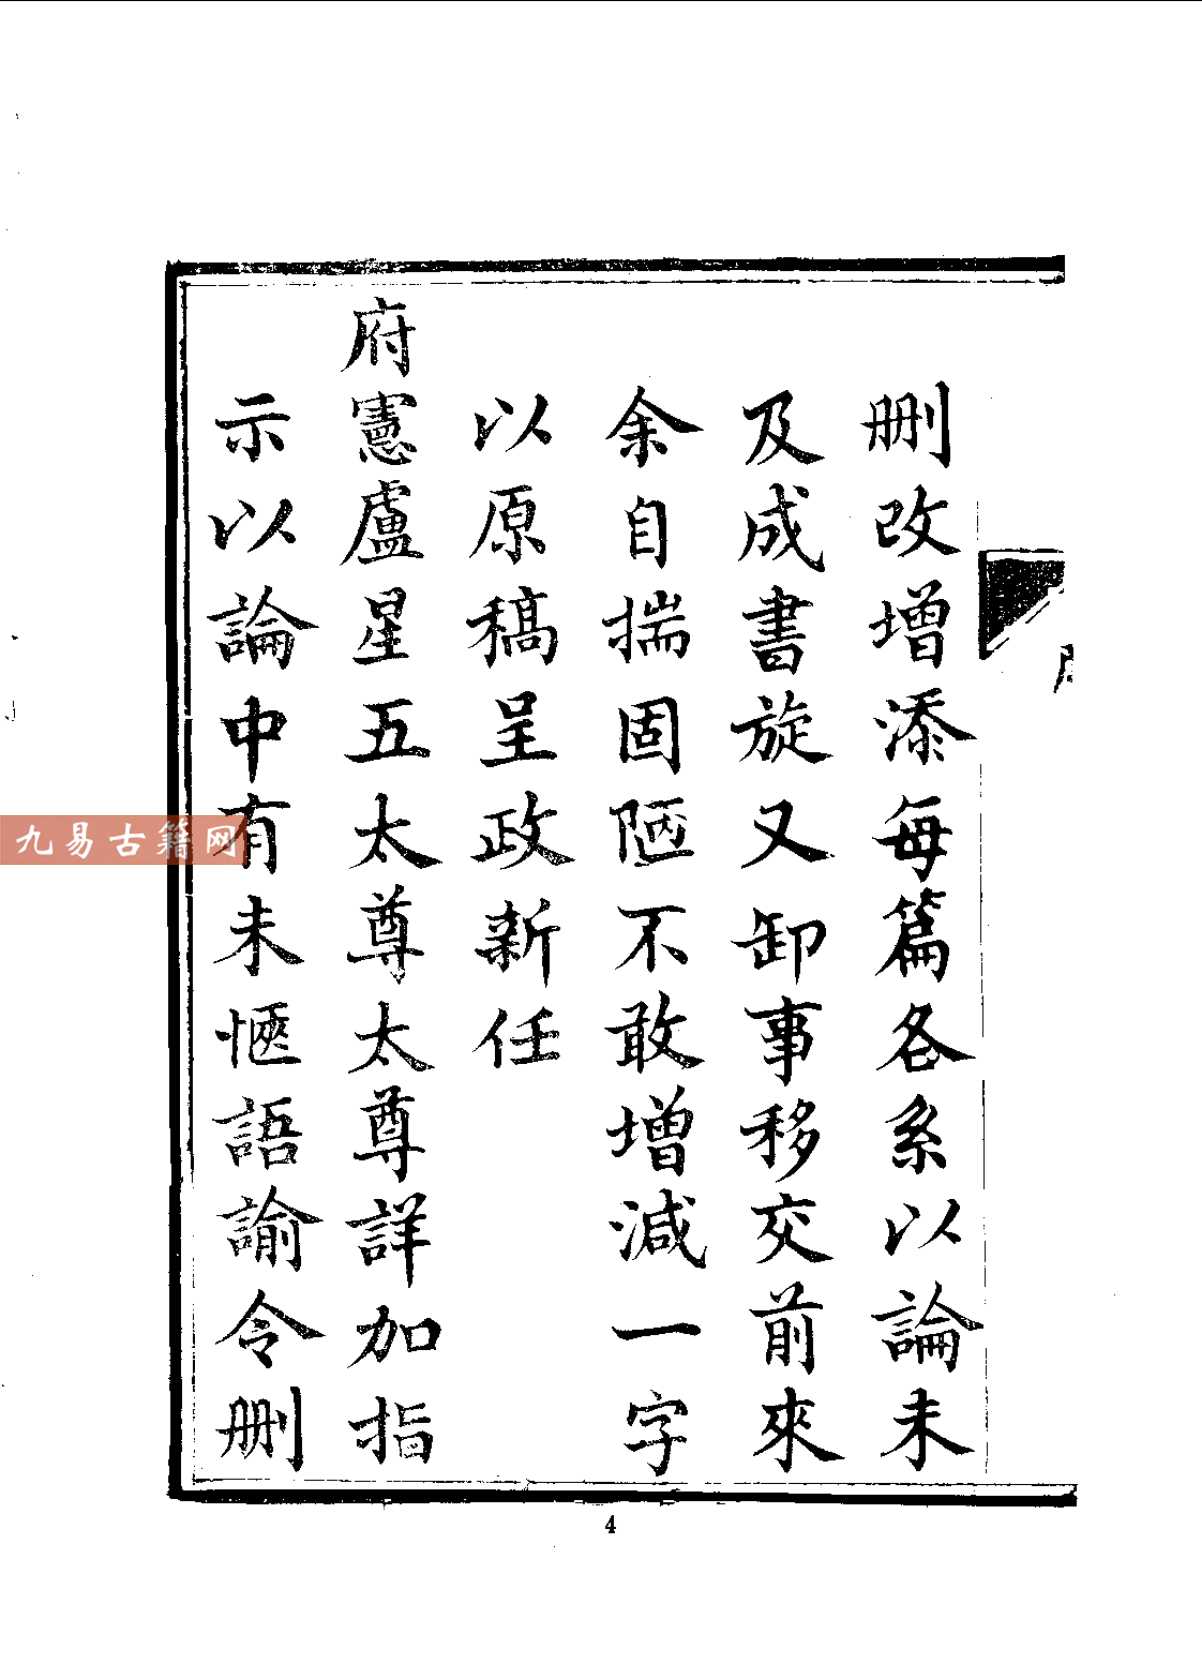 刪改增添每篇各系以論未
及成書旋又卸事移交前來
余自揣固陋不敢增減一字
以原稿呈政新任
府憲盧星五太尊太尊詳加指
示以論中有未愜語諭令刪
九易古籍网
4